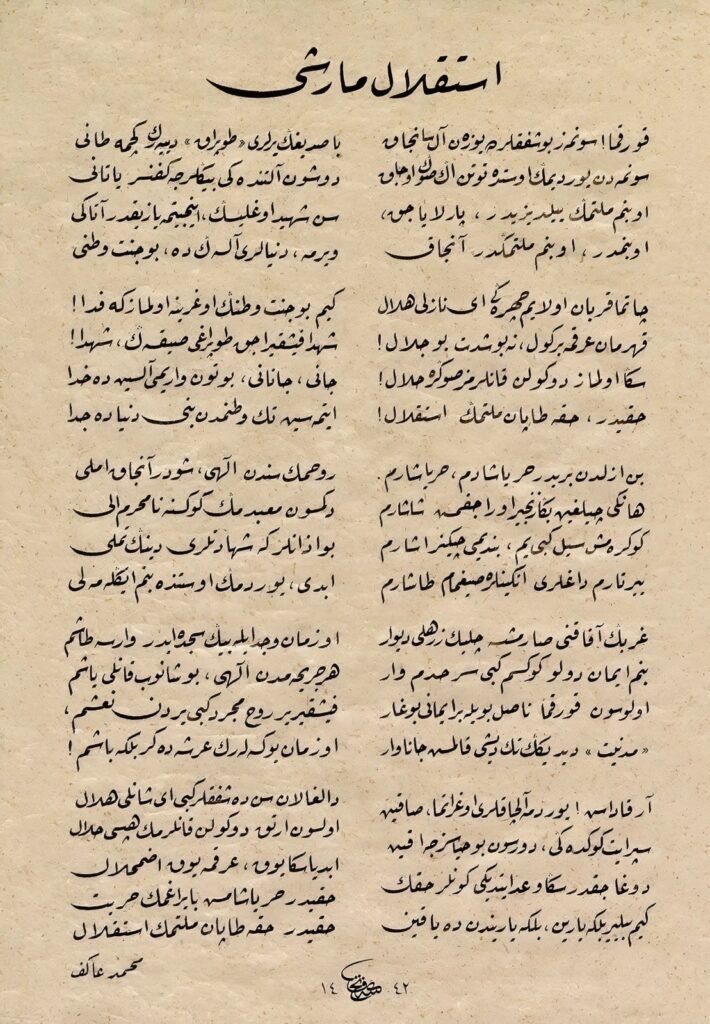 استقلال مارشی
قورقما! سونمز بو شفقلرده يوزن آل سانجاق
سونمه‌دن يورديمڭ اوستنده توتن اڭ صوڭ اوجاق
او بنم ملتمڭ ييلديزيدر ، پارلاياجق،
او بنمدر ، او بنم ملتمڭدر آنجاق
چاتما قربان اولايم چهره‌ڭى اى نازلى هلال
قهرمان عرقمه بر كول، نه بو شدت بو جلال!
سڭا اولماز دوكولن قانلرمز صوڭره حلال!
حقيدر ، حقه طاپان ملتمڭ استقلال!
بن ازلدن بريدر حر ياشادم ، حر ياشارم
هانكى چيلغين بڭا زنجير اوراجقمش شاشارم
كوكره‌مش سيل كبى‌يم ، بنديمى چيكنر اشارم
ييرتارم داغلرى انكينلره صيغمام طاشارم
غربڭ آفاقنى صارمشسه چليك زرهلى ديوار
بنم ايمان دولو كوكسم كبى سرحدم وار
اولوسون قورقما ناصل بويله بر ايمانى بوغار
«مدنيت» ديديكڭ تك ديشى قالمش جاناوار
آرقاداش ! يوردمه آلچاقلرى اوغراتما، صاقين
سپر ايت كوكده‌كى ، دورسون بو حياسزجه اقين
دوغاجقدر سڭا وعد ايتديكى كونلر حقڭ
كيم بيلير بلكه يارين ، بلكه ياريندن ده ياقين
باصديغڭ يرلرى «طوپراق» دييه‌رك كچمه طانى
دوشون آلتنده‌كى بيڭلرجه كفنسز ياتانى
سن شهيد اوغليسڭ، اينجيتمه يازيقدر آتاكى
ويرمه ، دنيالرى آلسه‌ڭ ده ، بو جنت وطنى
كيم بو جنت وطنڭ اوغرينه اولماز كه فدا!
شهدا فيشقيراجق طوپراغى صيقسه‌ڭ ، شهدا!
جانى ، جانانى ، بوتون واريمى آلسين ده خدا
ايتمه‌سين تك وطنمدن بنى دنياده جدا
روحمڭ سندن آلهى، شودر آنجاق املى
دكمسون معبدمڭ كوكسنه نامحرم الى
بو اذانلر كه شهادتلرى دينڭ تملى
ابدى ، يوردمڭ اوستنده بنم ايكله‌ملى
او زمان وجد ايله بيڭ سجده ايدر وارسه طاشم
هر جريحه‌مدن آلهى ، بوشانوب قانلى ياشم
فيشقيرير روح مجرد كبى يردن نعشم ،
او زمان يوكسه‌لرك عرشه دكر بلكه باشم !
دالغالان سن ده شفقلر كبى اى شانلى هلال
اولسون آرتق دوكولن قانلرمڭ هپسى حلال
ابديا سڭا يوق ، عرقمه يوق اضمحلال
حقيدر حر ياشامش بايراغمڭ حريت
حقيدر حقه طاپان ملتمڭ استقلال
محمد عاكف
١٤ ٤٢